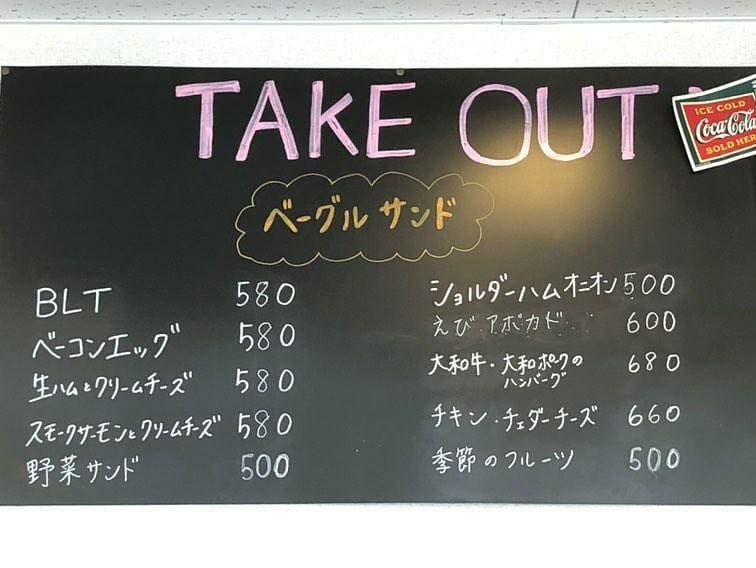 TAKE OUT
ICE COLD
Coca-Cola
SOLD HERE
ベーグル サンド
BLT 580
ベーコンエッグ 580
生ハムとクリームチーズ 580
スモークサーモンとクリームチーズ 580
野菜サンド 500
ショルダーハムオニオン 500
えび・アボカド 600
大和牛・大和ポークの 680
ハンバーグ
チキン・チェダーチーズ 660
季節のフルーツ 500